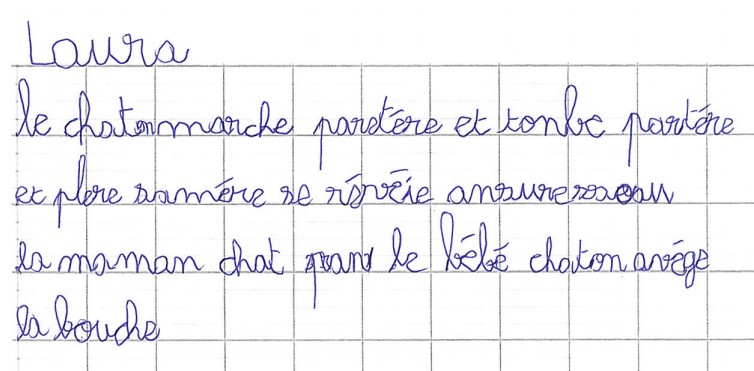 Laura
le chatonmarche paretére et tonbe partére
et plore samére se révéie ansuresaou
la maman chat pran le bébé chaton avége
la bouche